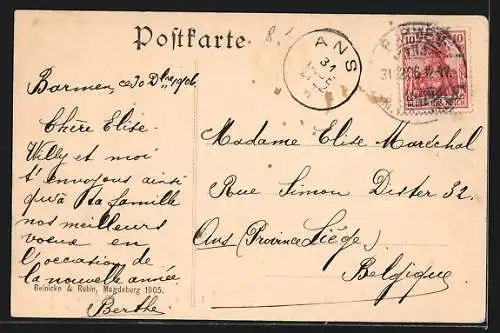 Postkarte.
8.
ANS
31
10
10
DEUTSCHES REICH
Barmen, ce 30 Dbre 1906.
Chère Elise.
Willy et moi
t'envoyons ainsi
qu'à ta famille
nos meilleurs
voeux en
l'occasion de
la nouvelle année.
Berthe
Reinicke & Rubin, Magdeburg 1905.
Madame Elise Maréchal
Rue Simon Dister 32.
Ans (Province Liége)
Belgique